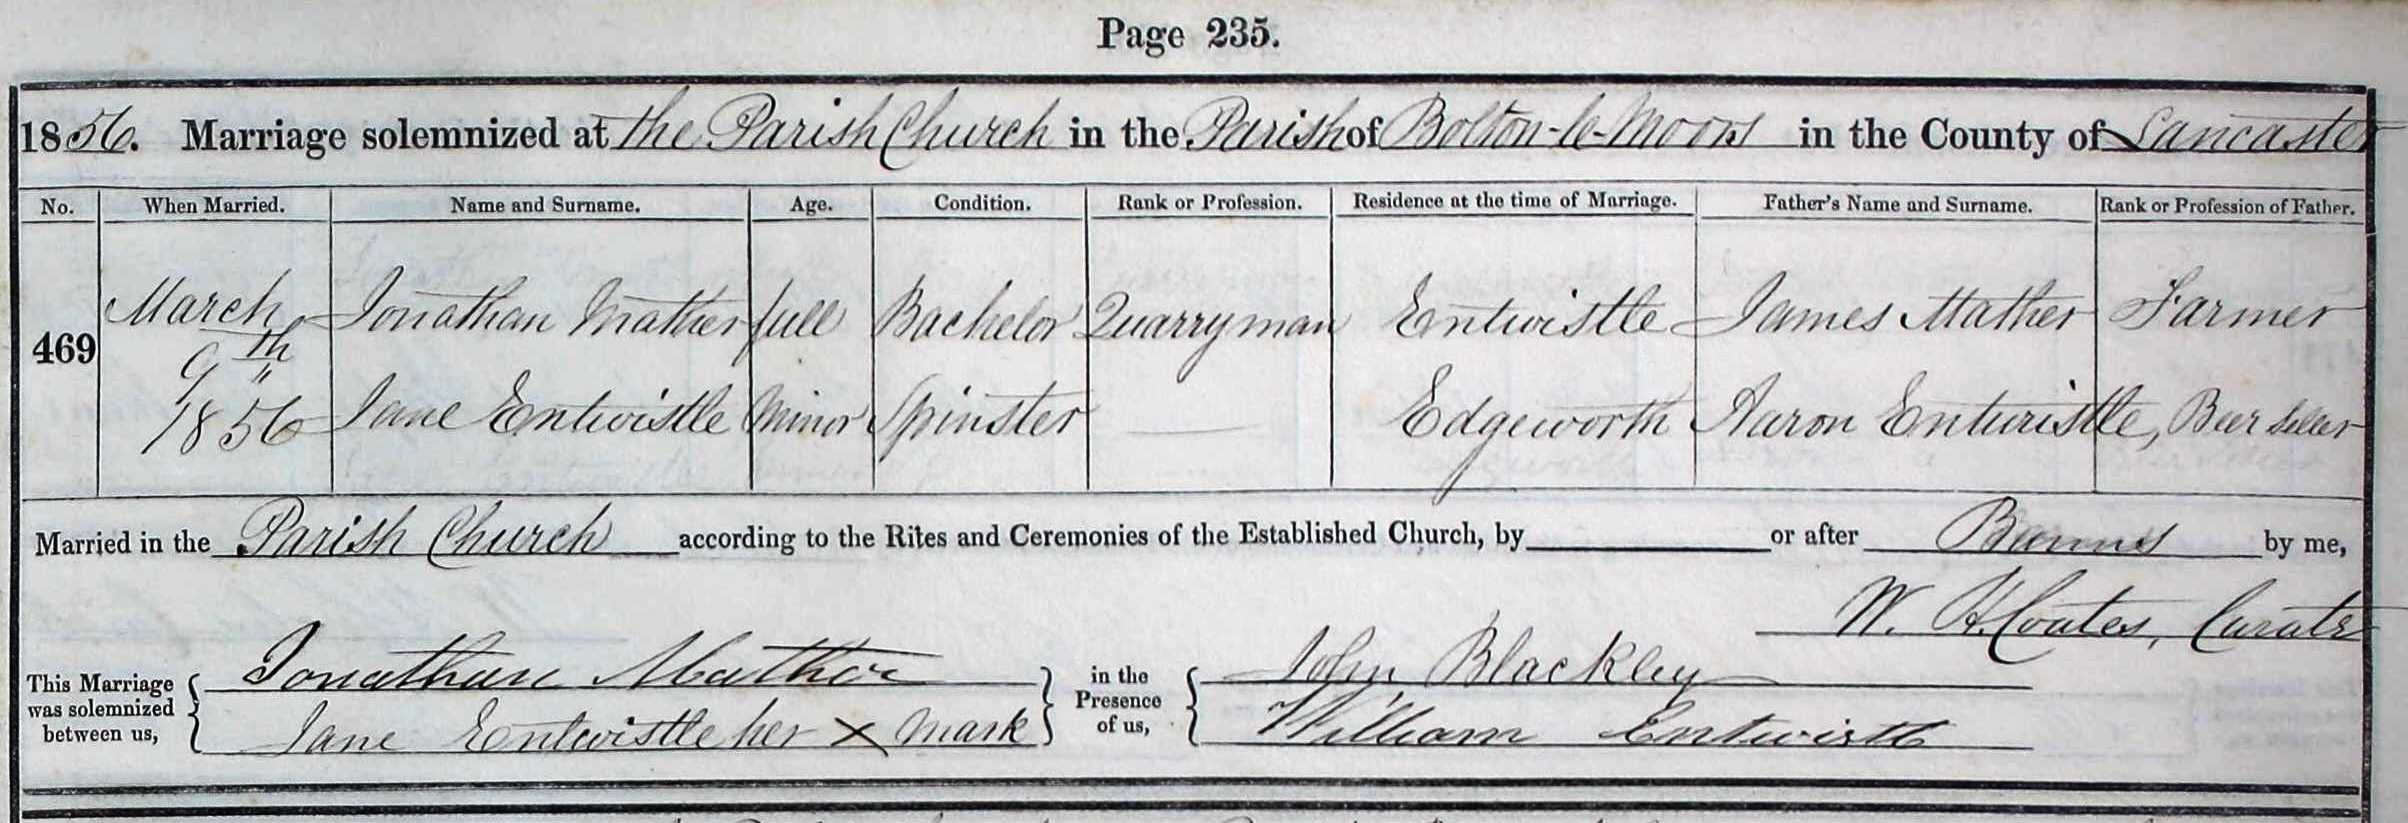 Page 235.
1856. Marriage solemnized at the Parish Church in the Parish of Bolton-le-Moors in the County of Lancaster
No. When Married. Name and Surname. Age. Condition. Rank or Profession. Residence at the time of Marriage. Father's Name and Surname. Rank or Profession of Father.
March Jonathan Mather full Bachelor Quarryman Entwistle James Mather Farmer
469 9th
1856 Jane Entwistle Minor Spinster Edgeworth Aaron Entwistle, Beer Seller
Married in the Parish Church according to the Rites and Ceremonies of the Established Church, by or after Banns by me,
W. H. Coates, Curate
This Marriage was solemnized between us, Jonathan Mather in the Presence of us, John Blackley
Jane Entwistle her X mark William Entwistle